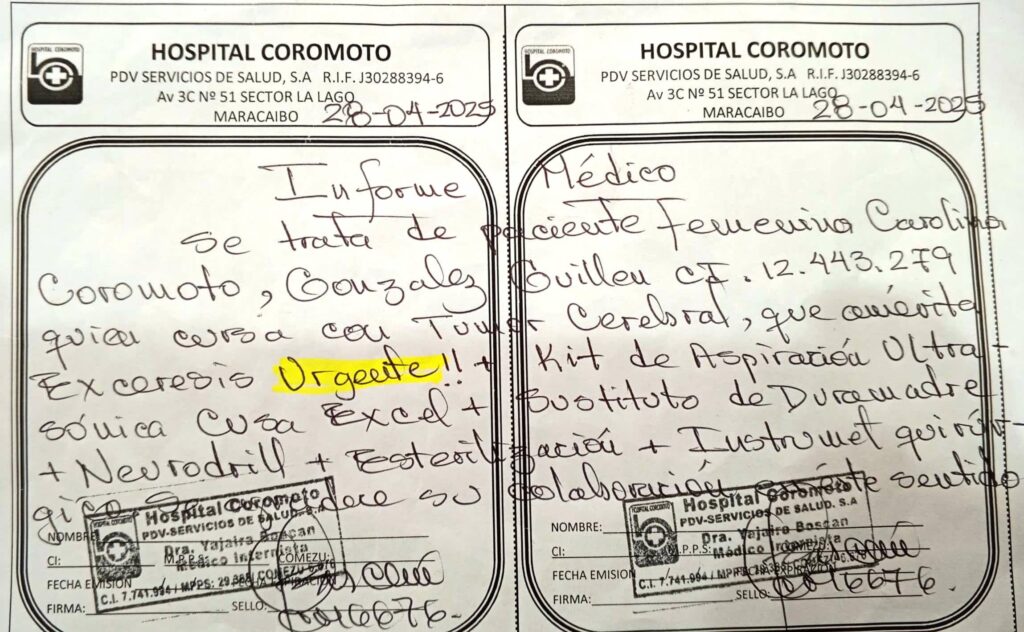 HOSPITAL COROMOTO
HOSPITAL COROMOTO
PDV SERVICIOS DE SALUD, S.A R.I.F. J30288394-6
Av 3C Nº 51 SECTOR LA LAGO
MARACAIBO 28-04-2025
HOSPITAL COROMOTO
HOSPITAL COROMOTO
PDV SERVICIOS DE SALUD, S.A R.I.F. J30288394-6
Av 3C Nº 51 SECTOR LA LAGO
MARACAIBO 28-04-2025
Informe Médico
Se trata de paciente femenina Carolina
Coromoto, Gonzalez Guillen CI. 12.443.279
quien cursa con Tumor Cerebral, que amerita
Exceresis Urgente!! + Kit de Aspiración Ultra-
sónica Cusa Excel + Sustituto de Duramadre
+ Neurodrill + Esterilización + Instrumet quirúr-
gico su colaboración en éste sentido
NOMBRE:
CI: M.P.P.S: COMEZU:
FECHA EMISION
FIRMA: SELLO:
Hospital Coromoto
PDV-SERVICIOS DE SALUD. S.A
Dra. Yajaira Boscan
Médico Internista
C.I. 7.741.994 / MPPS: 29.388 / COMEZU
16676
NOMBRE:
CI: M.P.P.S: COMEZU:
FECHA EMISION
FIRMA: SELLO:
Hospital Coromoto
PDV-SERVICIOS DE SALUD. S.A
Dra. Yajaira Boscan
Médico Internista
C.I. 7.741.994 / MPPS:
16676